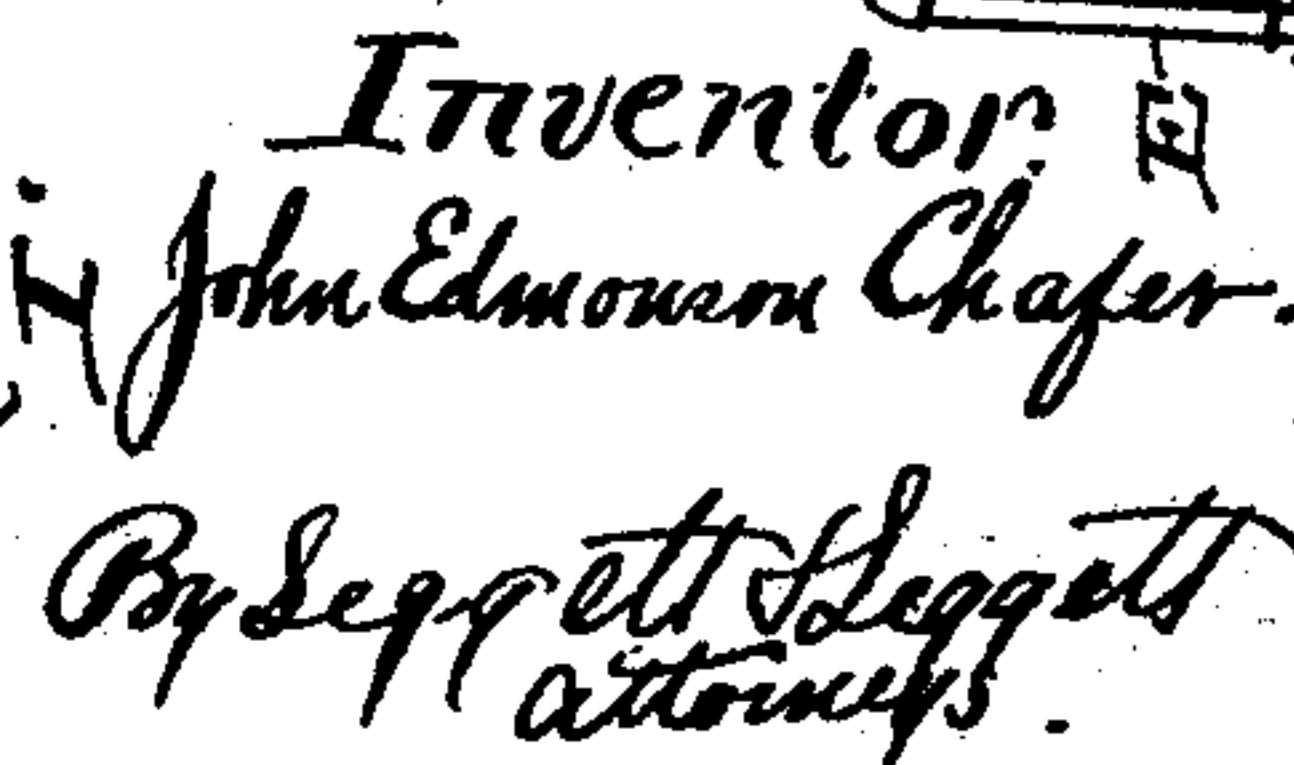 Inventor.
E
John Edmonson Chafer.
By Leggett & Leggett
Attorneys.